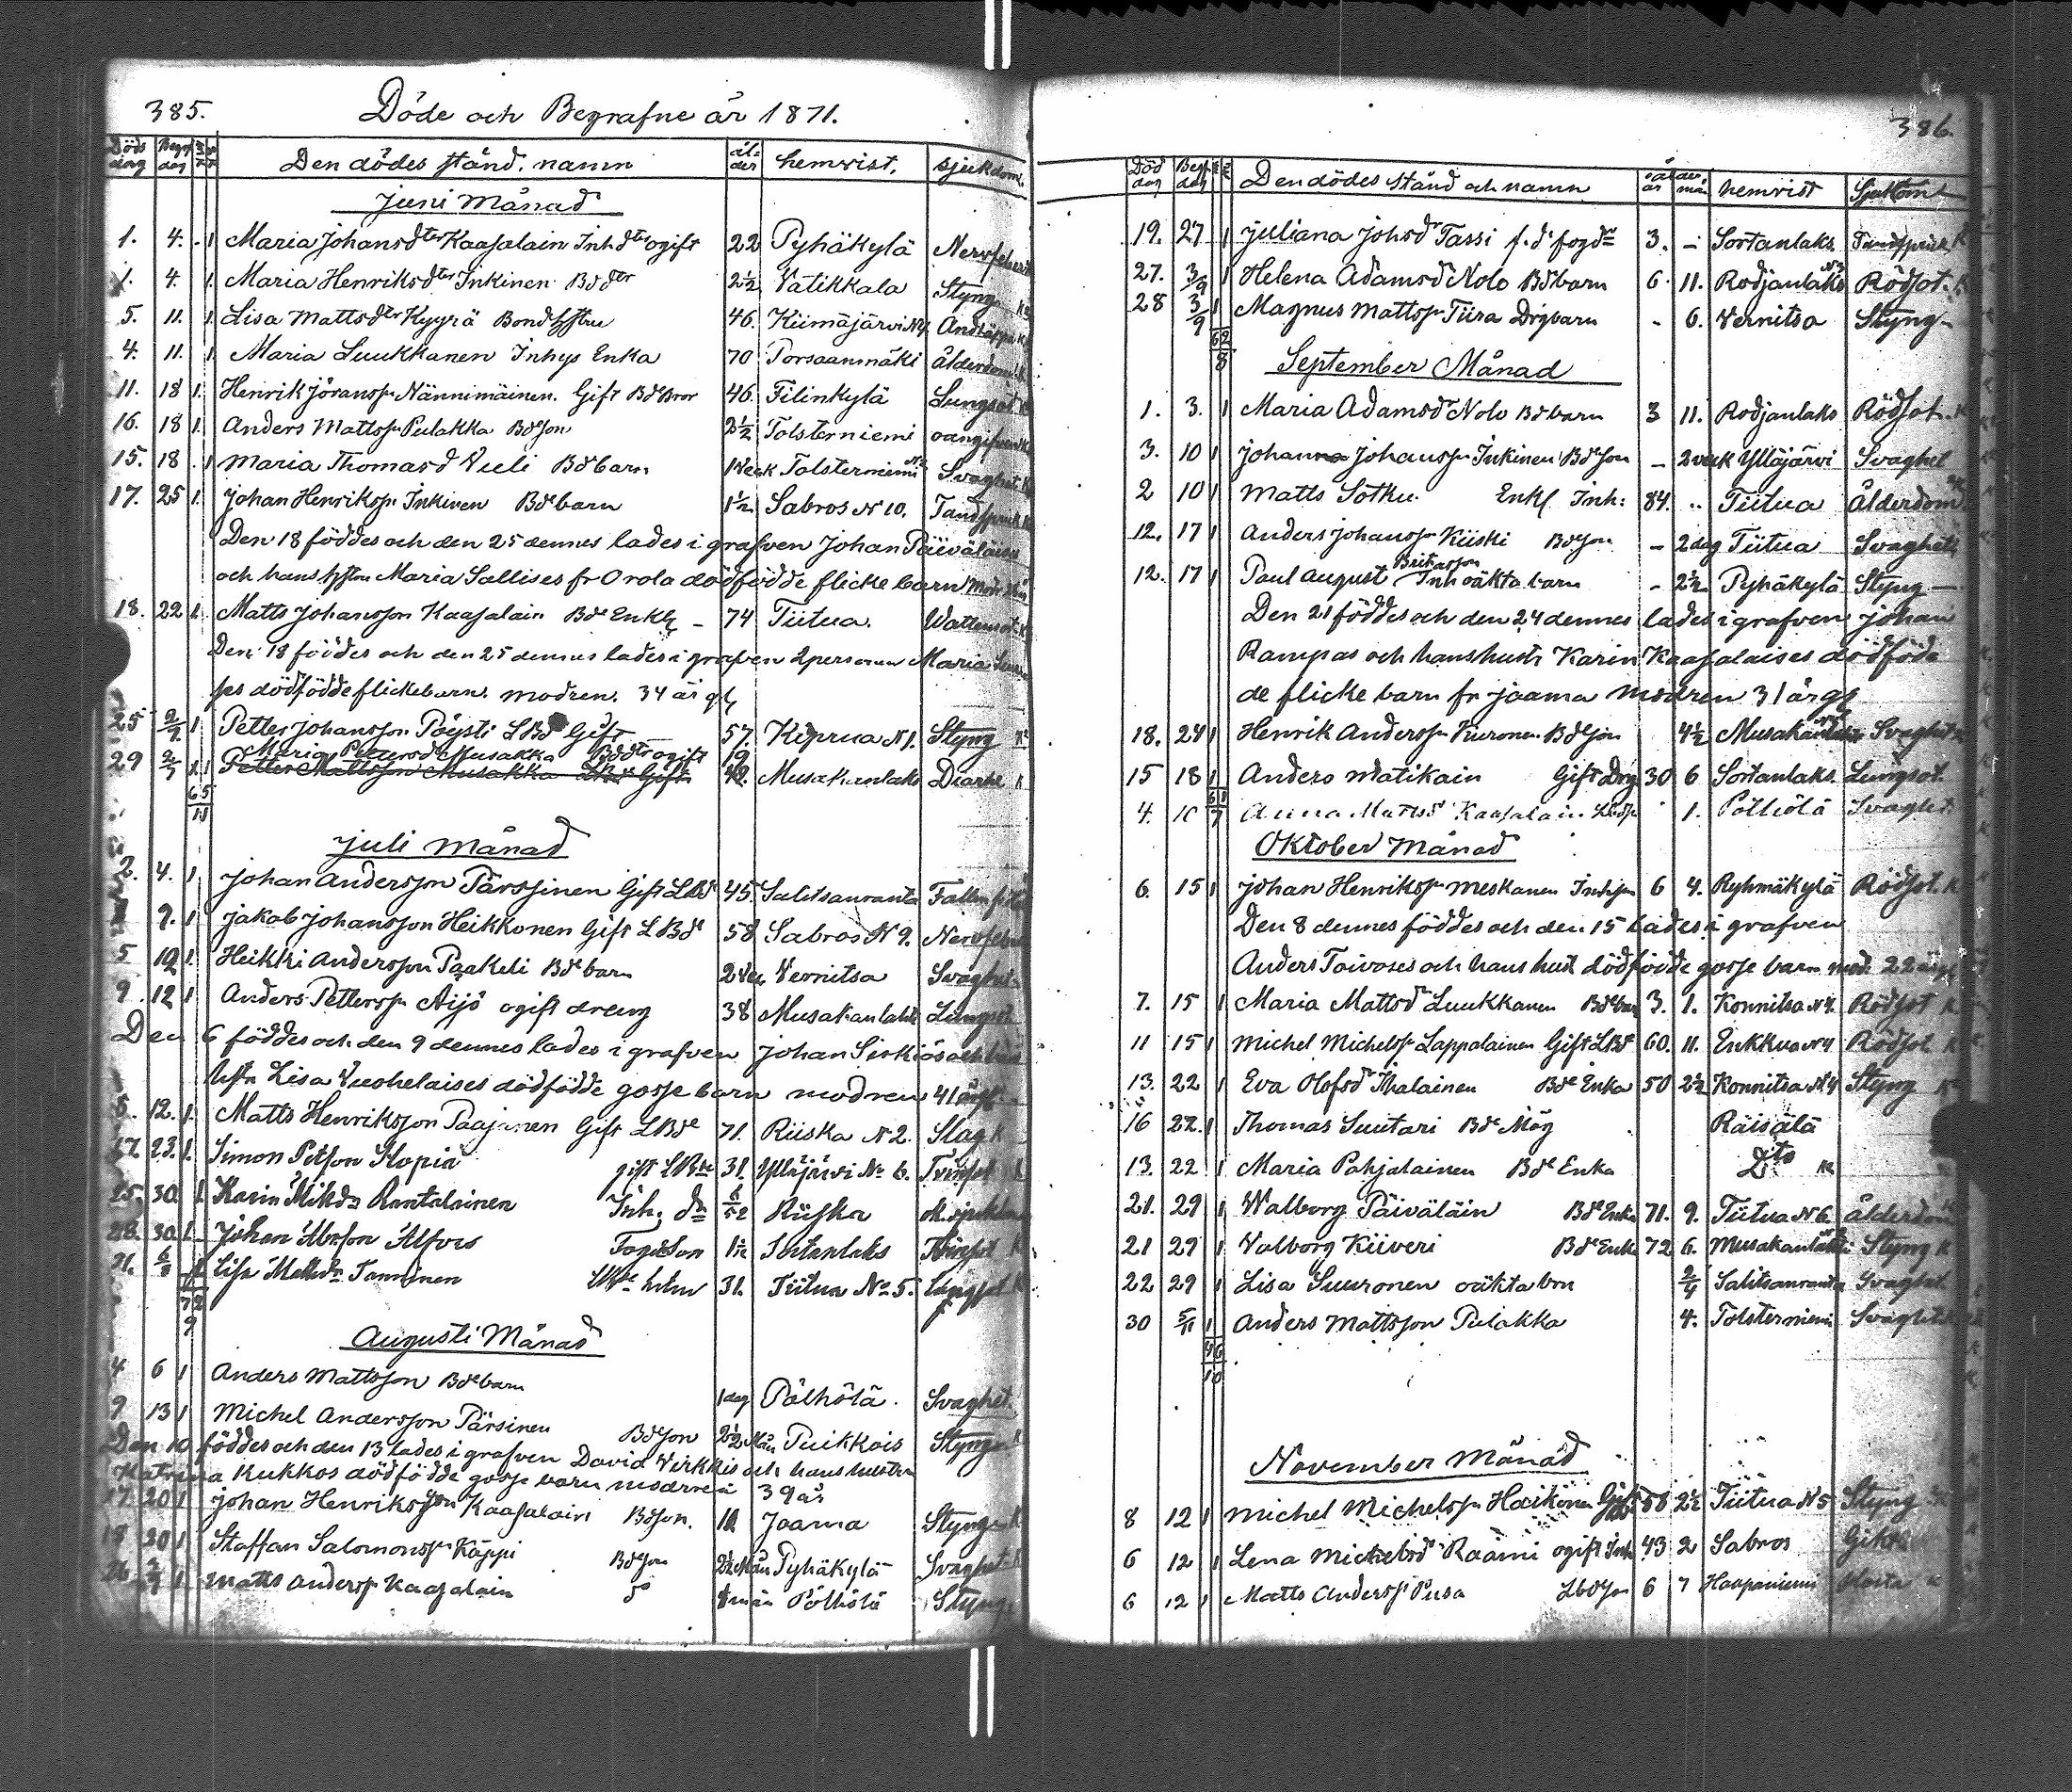 385. Döde och Begrafne år 1871.
Döds dag Begr dag Den dödes stånd, namn ål-der hemvist, sjukdom.
Juni Månad
1. 4. 1 Maria Johansdter Kaasalain Inh dter ogift 22 Pyhäkylä Nervfeber
1. 4. 1. Maria Henriksdter Inkinen Bddter 2½ Vatikkala Styng
5. 11. 1. Lisa Mattsdter Kyyrä Bond hstru 46. Kiimäjärvi N4.
4. 11. 1. Maria Luukkanen Inhys Enka 70 Porsaanmäki ålderdom
11. 18 1. Henrik Jöranss Nännimäinen. Gift Bde Bror 46. Filinkylä Lungsot
16. 18 1. Anders Mattss Pulakka Bdeson 2½ Tolsterniemi oangifven
15. 18 1 Maria Thomasd Vuli Bdebarn 1 Veck Tolsterniemi Svaghet
17. 25 1. Johan Henrikss Inkinen Bdebarn 1½ Sabros N 10. Tandsprick
Den 18 föddes och den 25 dennes lades i grafven Johan Päiväläisen
och hans hstru Maria Sallises fr Orola dödfödde flicke barn
18. 22 1. Matts Johansson Kaasalain Bde Enkl 74 Tiitua. Wattensot
Den 18 föddes och den 25 dennes lades i grafven 2 personer Maria
ses dödfödde flickebarn. modren. 34 år gl
25 2/7 1. Petter Johansson Pöysti LBd Gift 57. Kiprua N 1. Styng
29 2/7 1 Maria Pettersd Musakka Bddtr ogift 19 Musakanlaks Diarhe
Petter Mattsson Musakka LBde Gift
6 5
11
Juli Månad
2. 4. 1. Johan Andersson Pärssinen Gift LBde 45. Salitsanranta
7. 1 Jakob Johansson Heikkonen Gift LBde 58 Sabros N 9. Nervfeber
5 12 1. Heikki Andersson Paakeli Bdebarn 2 Vec Vernitsa Svaghet
9. 12 1 Anders Petterss Äijö ogift dreng 38 Musakanlahti Lungsot
Den 6 föddes och den 9 dennes lades i grafven Johan Siskiös och hans
hstr Lisa Vuohelaises dödfödde gosse barn modren 41 årgl
5. 12. 1. Matts Henriksson Paajanen Gift LBde 71. Riiska N 2. Slag
17. 23. 1. Simon Petson Skopia gift LBde 31. Ylläjärvi No 6. Tvinsot
25. 30. 1. Karin Mikdr Rantalainen Inh. dr 6/52 Riiska
28. 30. 1. Johan Abrson Alfors Togdeson 1½ Sortanlaks Tvinsot
31. 6/8 1 Lisa Mattsdr Tanninen LBde hstru 31. Tiitua No 5. Lungsot
7 2
9
Augusti Månad
4 6 1 Anders Mattsson Bdebarn 1 dag Pölhölä. Svaghet.
9 13 1 Michel Andersson Pärsinen Bdson 2½ Mån Puikkois Styng
Den 10 föddes och den 13 lades i grafven David Virkkis och hans hustru
Katrina Kukkos dödfödde gosse barn modren 39 år
17. 20 1 Johan Henriksson Kaasalain Bdson. Jaama Styng
18 20 1 Staffan Salomonss Käppi Bdeson 2½ Mån Pyhäkylä Svaghet
26 1 Matts Anderss Kaasalain mån Pölhölä Styng

386.
Död dag Begr dag Den dödes stånd och namn år mån hemvist Sjukdom
19. 27 1 Juliana Johsd Tassi f.d. fogdr 3. - Sortanlaks. Tandsprick
27. 3/9 1 Helena Adamsd Nolo Bdbarn 6. 11. Rodjanlaks Rödsot.
28 3/9 1 Magnus Mattss Tiira Drgbarn - 6. Vernitsa Styng
6 2
8
September Månad
1. 3. 1 Maria Adamsd Nolo Bdbarn 3 11. Rodjanlaks Rödsot.
3. 10 1 Johan Johanss Inkinen Bdeson - 2 veck Ylläjärvi Svaghet
2 10 1 Matts Sotku. Enkl Inh: 84. .. Tiitua Ålderdom.
12. 17 1 Anders Johanss Kiiski Bdeson - 2 dag Tiitua Svaghet
12. 17 1 Paul August Britasson Inh oäkta barn - 2½ Pyhäkylä Styng
Den 21 föddes och den 24 dennes lades i grafven Johan
Rampas och hans hustr Karin Kaasalaises dödföd
de flicke barn fr Jaama modren 31 årgl
18. 24 1 Henrik Anderss Kuronen Bdeson 4½ Musakanlaks Svaghet
15 18 1 Anders Matikain Gift Drg 30 6 Sortanlaks. Lungsot.
4. 10 Anna Mattsd Kaasalain 1. Pölhölä Svaghet
6 1
7
Oktober Månad
6. 15 1 Johan Henrikss Meskanen Inhson 6 4. Ryhmäkylä Rödsot.
Den 8 dennes föddes och den 15 lades i grafven
Anders Toivoses och hans hust dödfödde gosse barn mod. 22 årgl
7. 15 1 Maria Mattsd Luukkanen Bdebarn 3. 1. Konnitsa N4. Rödsot
11 15 1 Michel Michelss Lappalainen Gift LBde 60. 11. Enkkua N4 Rödsot
13. 22 1 Eva Olofsd Ihalainen Bde Enka 50 2½ Konnitsa N4 Styng
16 22. 1 Thomas Suutari Bde Måg Räisälä
13. 22 1 Maria Pohjalainen Bde Enka Dto
21. 29 1 Walborg Päiväläin Bde Enka 71. 9. Tiitua N 6. ålderdom
21 29 1 Valborg Kiiveri Bde Enk 72 6. Musakanlahti Styng
22 29 1 Lisa Suuronen oäkta brn 2/4 Salitsanranta Svaghet
30 5/11 1 Anders Mattsson Pulakka 4. Tolsterniemi Svaghet
4 6
10
November Månad
8 12 1 Michel Michelss Haikonen Gift 58 2½ Tiitua N 5 Styng
6 12 1 Lena Michelsd Raami ogift Inh 43 2 Sabros
6 12 1 Matts Anderss Pusa Lbdson 6 7 Haapaniemi Hosta